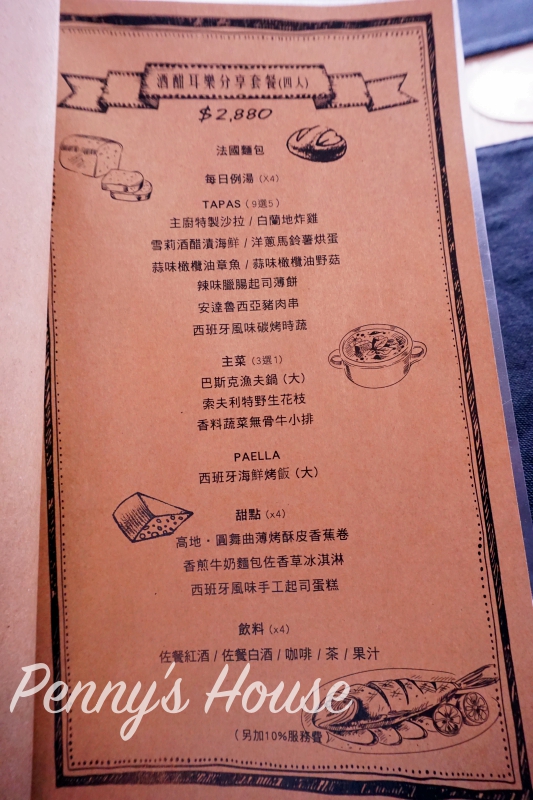 酒酣耳樂分享套餐(四人)
$2,880
法國麵包
每日例湯 (X4)
TAPAS (9選5)
主廚特製沙拉 / 白蘭地炸雞
雪莉酒醋漬海鮮 / 洋蔥馬鈴薯烘蛋
蒜味橄欖油章魚 / 蒜味橄欖油野菇
辣味臘腸起司薄餅
安達魯西亞豬肉串
西班牙風味碳烤時蔬
主菜 (3選1)
巴斯克漁夫鍋 (大)
索夫利特野生花枝
香料蔬菜無骨牛小排
PAELLA
西班牙海鮮烤飯 (大)
甜點 (x4)
高地・圓舞曲薄烤酥皮香蕉卷
香煎牛奶麵包佐香草冰淇淋
西班牙風味手工起司蛋糕
飲料 (x4)
佐餐紅酒 / 佐餐白酒 / 咖啡 / 茶 / 果汁
Penny's House
(另加10%服務費)